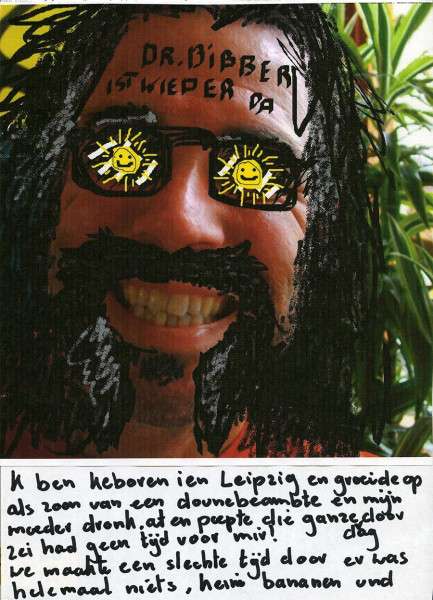 DR. BIBBER
IST WIEDER DA
k ben keboren ien Leipzig en groeide op
als zoon van een dounebeambte en mijn
moeder dronk, at en poepte die ganze door
dag
zei had geen tijd voor mir!
we maakte een slechte tijd door er was
helemaal niets, keine bananen und